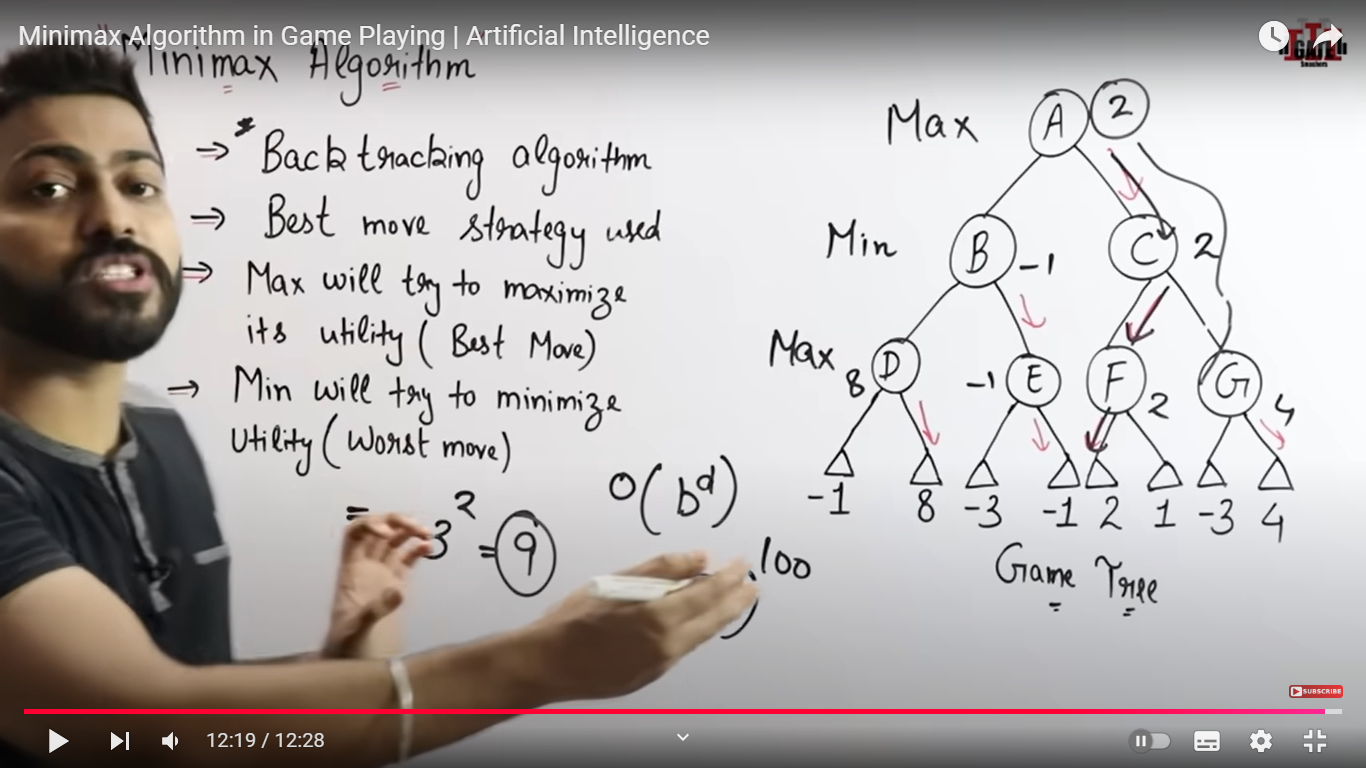 Minimax Algorithm in Game Playing | Artificial Intelligence
GATE
Smashers
Minimax Algorithm
⇒ * Backtracking algorithm
⇒ Best move strategy used
⇒ Max will try to maximize
its utility ( Best Move)
⇒ Min will try to minimize
Utility ( Worst move)
= 3² = 9
O(b^d)
100
Max A 2
Min B -1 C 2
Max 8 D -1 E F 2 G 4
-1 8 -3 -1 2 1 -3 4
Game Tree
SUBSCRIBE
12:19 / 12:28